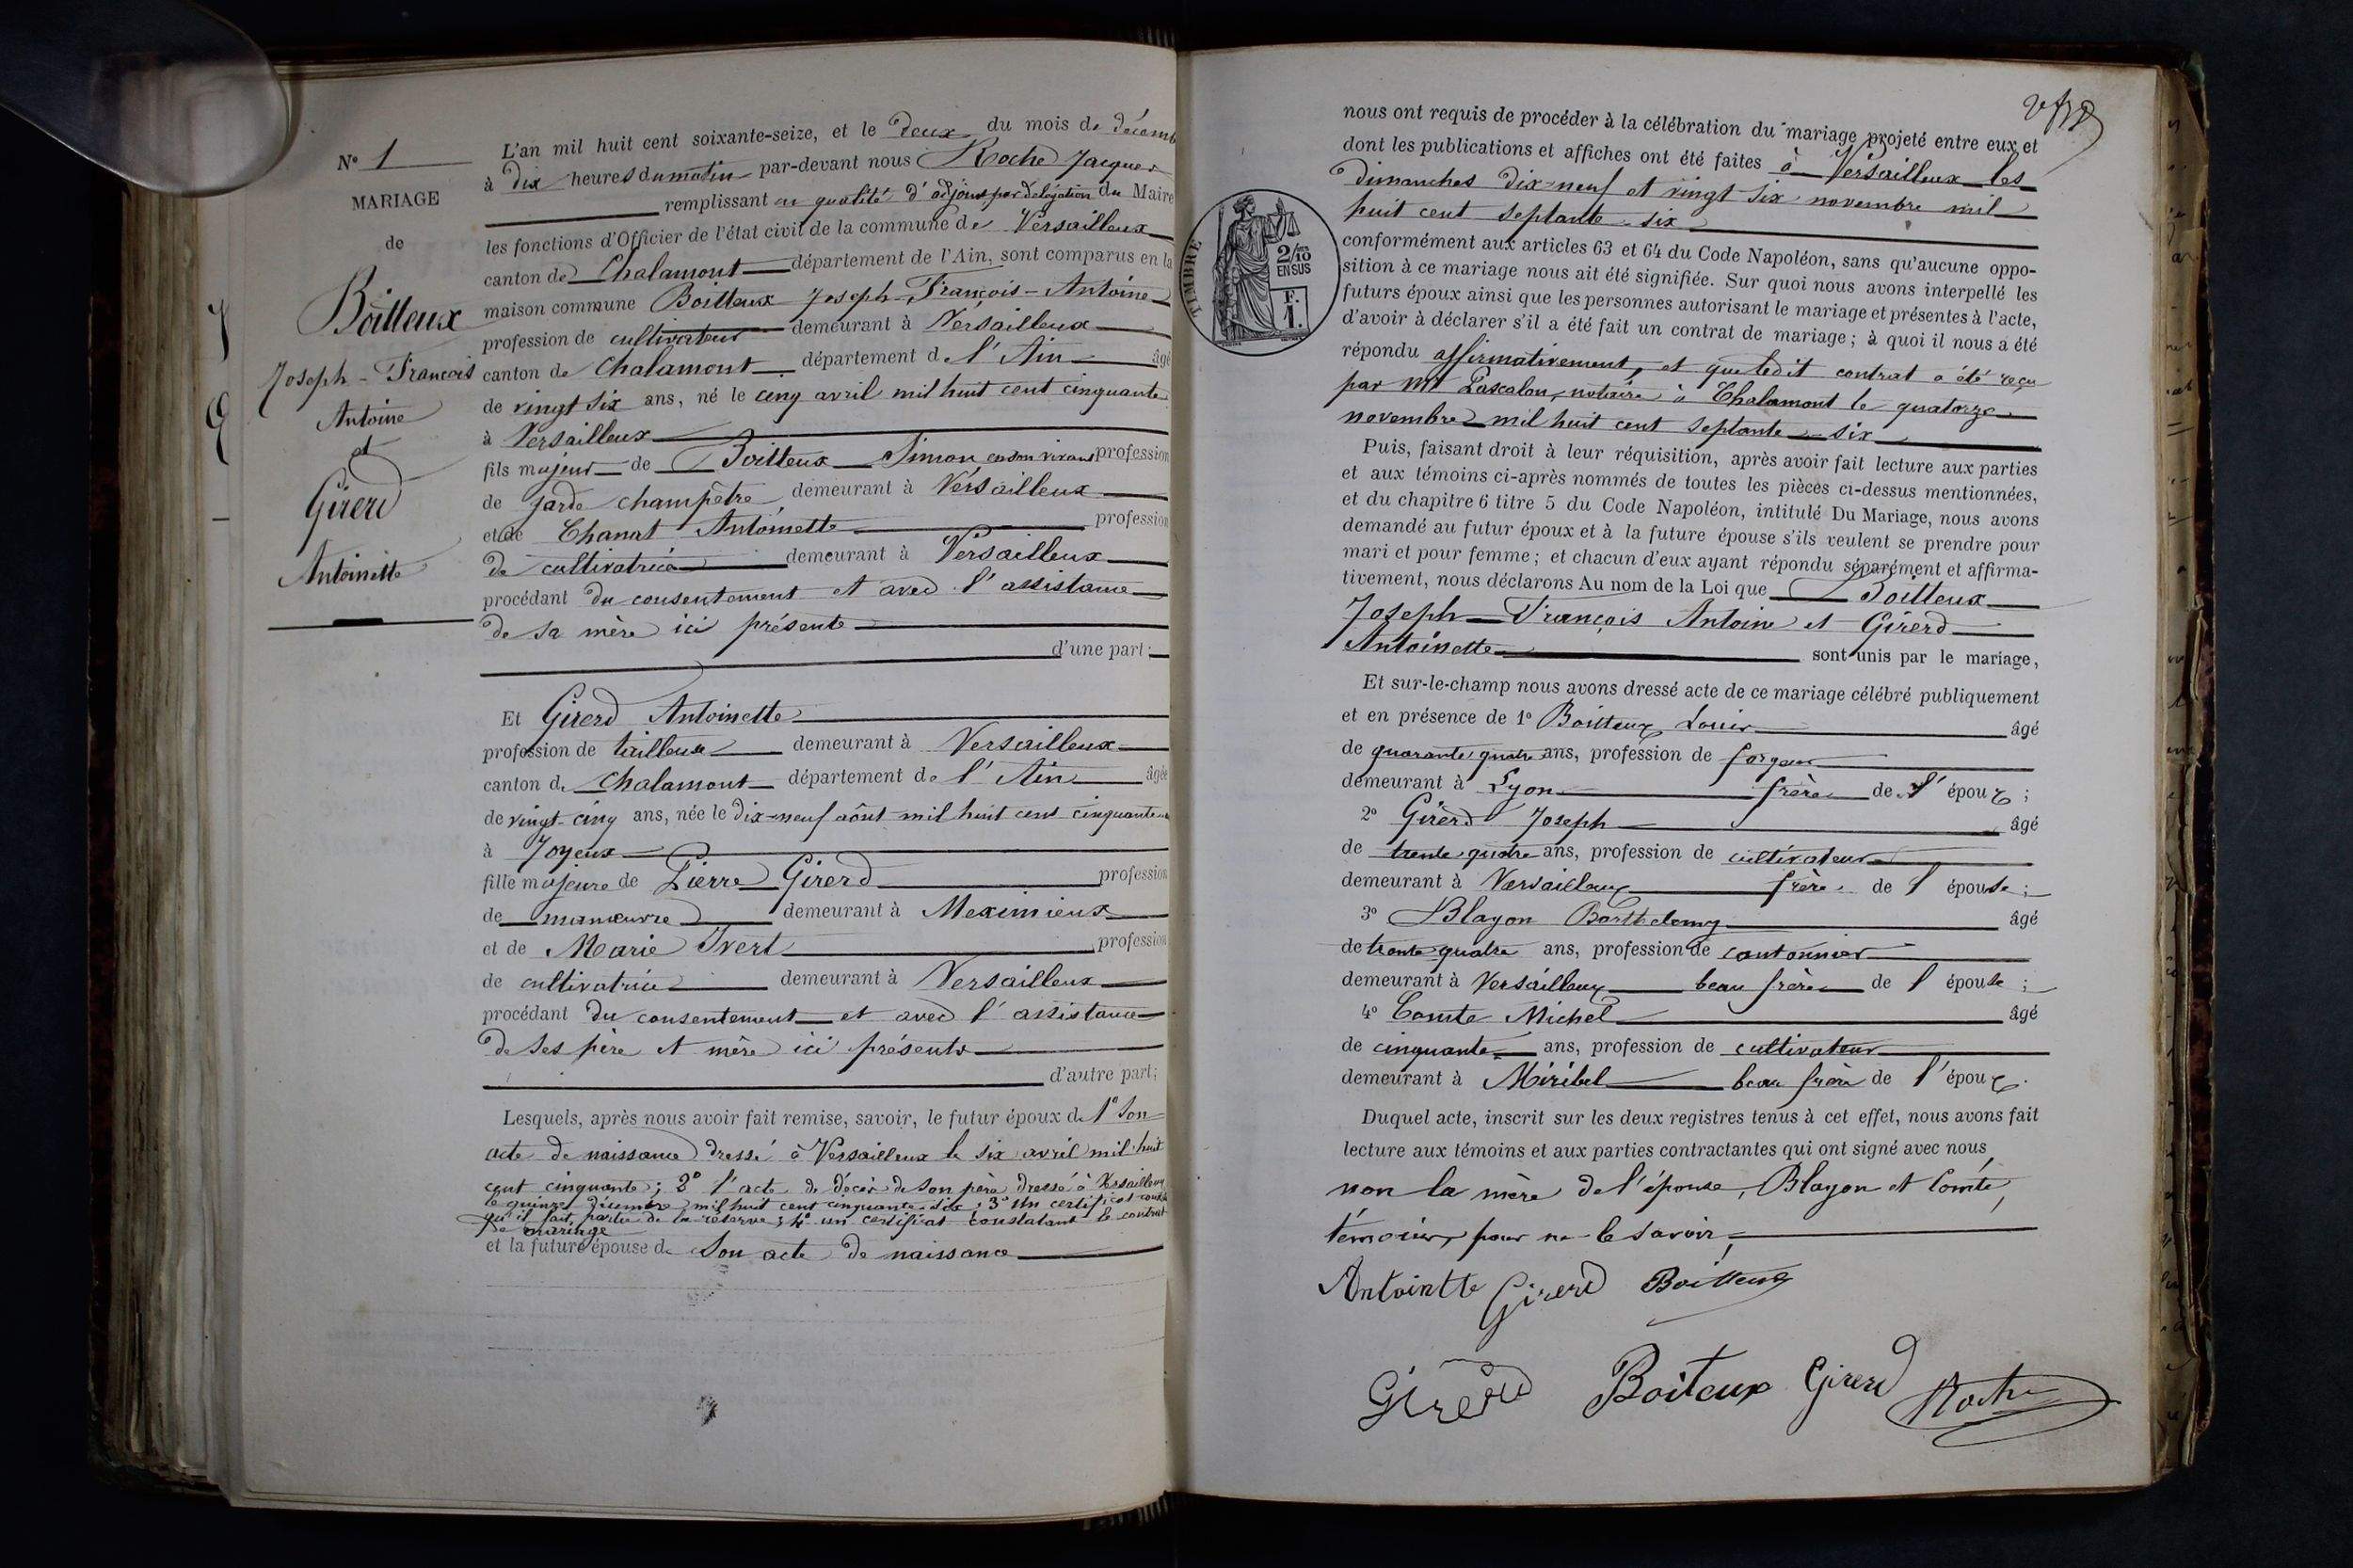 N° 1
MARIAGE
de
Boitteux
Joseph - François
Antoine
et
Girerd
Antoinette
L'an mil huit cent soixante-seize, et le deux du mois de décemb
à dix heures du matin par-devant nous Roche Jacques
remplissant en qualité d'adjoint par délégation du Maire
les fonctions d'Officier de l'état civil de la commune de Versailleux
canton de Chalamont département de l'Ain, sont comparus en la
maison commune Boitteux Joseph - François - Antoine
profession de cultivateur demeurant à Versailleux
canton de Chalamont département de l'Ain âgé
de vingt six ans, né le cinq avril mil huit cent cinquante
à Versailleux
fils majeur de Boitteux Simon en son vivant profession
de garde champêtre demeurant à Versailleux
et de Chanat Antoinette profession
de cultivatrice demeurant à Versailleux
procédant du consentement et avec l'assistance
de sa mère ici présente
d'une part;
Et Girerd Antoinette
profession de tailleuse demeurant à Versailleux
canton de Chalamont département de l'Ain âgée
de vingt-cinq ans, née le dix-neuf août mil huit cent cinquante
à Joyeux
fille majeure de Pierre Girerd profession
de manœuvre demeurant à Meximieux
et de Marie Ivert profession
de cultivatrice demeurant à Versailleux
procédant du consentement et avec l'assistance
de ses père et mère ici présents
d'autre part;
Lesquels, après nous avoir fait remise, savoir, le futur époux de 1° son
acte de naissance dressé à Versailleux le six avril mil huit
cent cinquante; 2° l'acte de décès de son père dressé à Versailleux
le quinze décembre mil huit cent cinquante six; 3° un certificat
qu'il fait partie de la réserve; 4° un certificat constatant le contrat
de mariage
et la future épouse de son acte de naissance
nous ont requis de procéder à la célébration du mariage projeté entre eux et
dont les publications et affiches ont été faites à Versailleux les
dimanches dix-neuf et vingt six novembre mil
huit cent septante six
TIMBRE
2/10
EN SUS
F.
1.
conformément aux articles 63 et 64 du Code Napoléon, sans qu'aucune oppo-
sition à ce mariage nous ait été signifiée. Sur quoi nous avons interpellé les
futurs époux ainsi que les personnes autorisant le mariage et présentes à l'acte,
d'avoir à déclarer s'il a été fait un contrat de mariage; à quoi il nous a été
répondu affirmativement, et que ledit contrat a été reçu
par Mt Pascalon, notaire à Chalamont le quatorze
novembre mil huit cent septante - six
Puis, faisant droit à leur réquisition, après avoir fait lecture aux parties
et aux témoins ci-après nommés de toutes les pièces ci-dessus mentionnées,
et du chapitre 6 titre 5 du Code Napoléon, intitulé Du Mariage, nous avons
demandé au futur époux et à la future épouse s'ils veulent se prendre pour
mari et pour femme; et chacun d'eux ayant répondu séparément et affirma-
tivement, nous déclarons Au nom de la Loi que Boitteux
Joseph François Antoine et Girerd
Antoinette sont unis par le mariage,
Et sur-le-champ nous avons dressé acte de ce mariage célébré publiquement
et en présence de 1° Boitteux Louis âgé
de quarante quatre ans, profession de forgeur
demeurant à Lyon frère de l'époux;
2° Girerd Joseph âgé
de trente quatre ans, profession de cultivateur
demeurant à Versailleux frère de l'épouse;
3° Blayon Barthelemy âgé
de trente quatre ans, profession de cantonnier
demeurant à Versailleux beau frère de l'épouse;
4° Comte Michel âgé
de cinquante ans, profession de cultivateur
demeurant à Miribel beau frère de l'époux.
Duquel acte, inscrit sur les deux registres tenus à cet effet, nous avons fait
lecture aux témoins et aux parties contractantes qui ont signé avec nous
non la mère de l'épouse, Blayon et Comte,
témoins, pour ne le savoir
Antointte Girerd Boitteux
Girerd Boiteux Girerd Roche